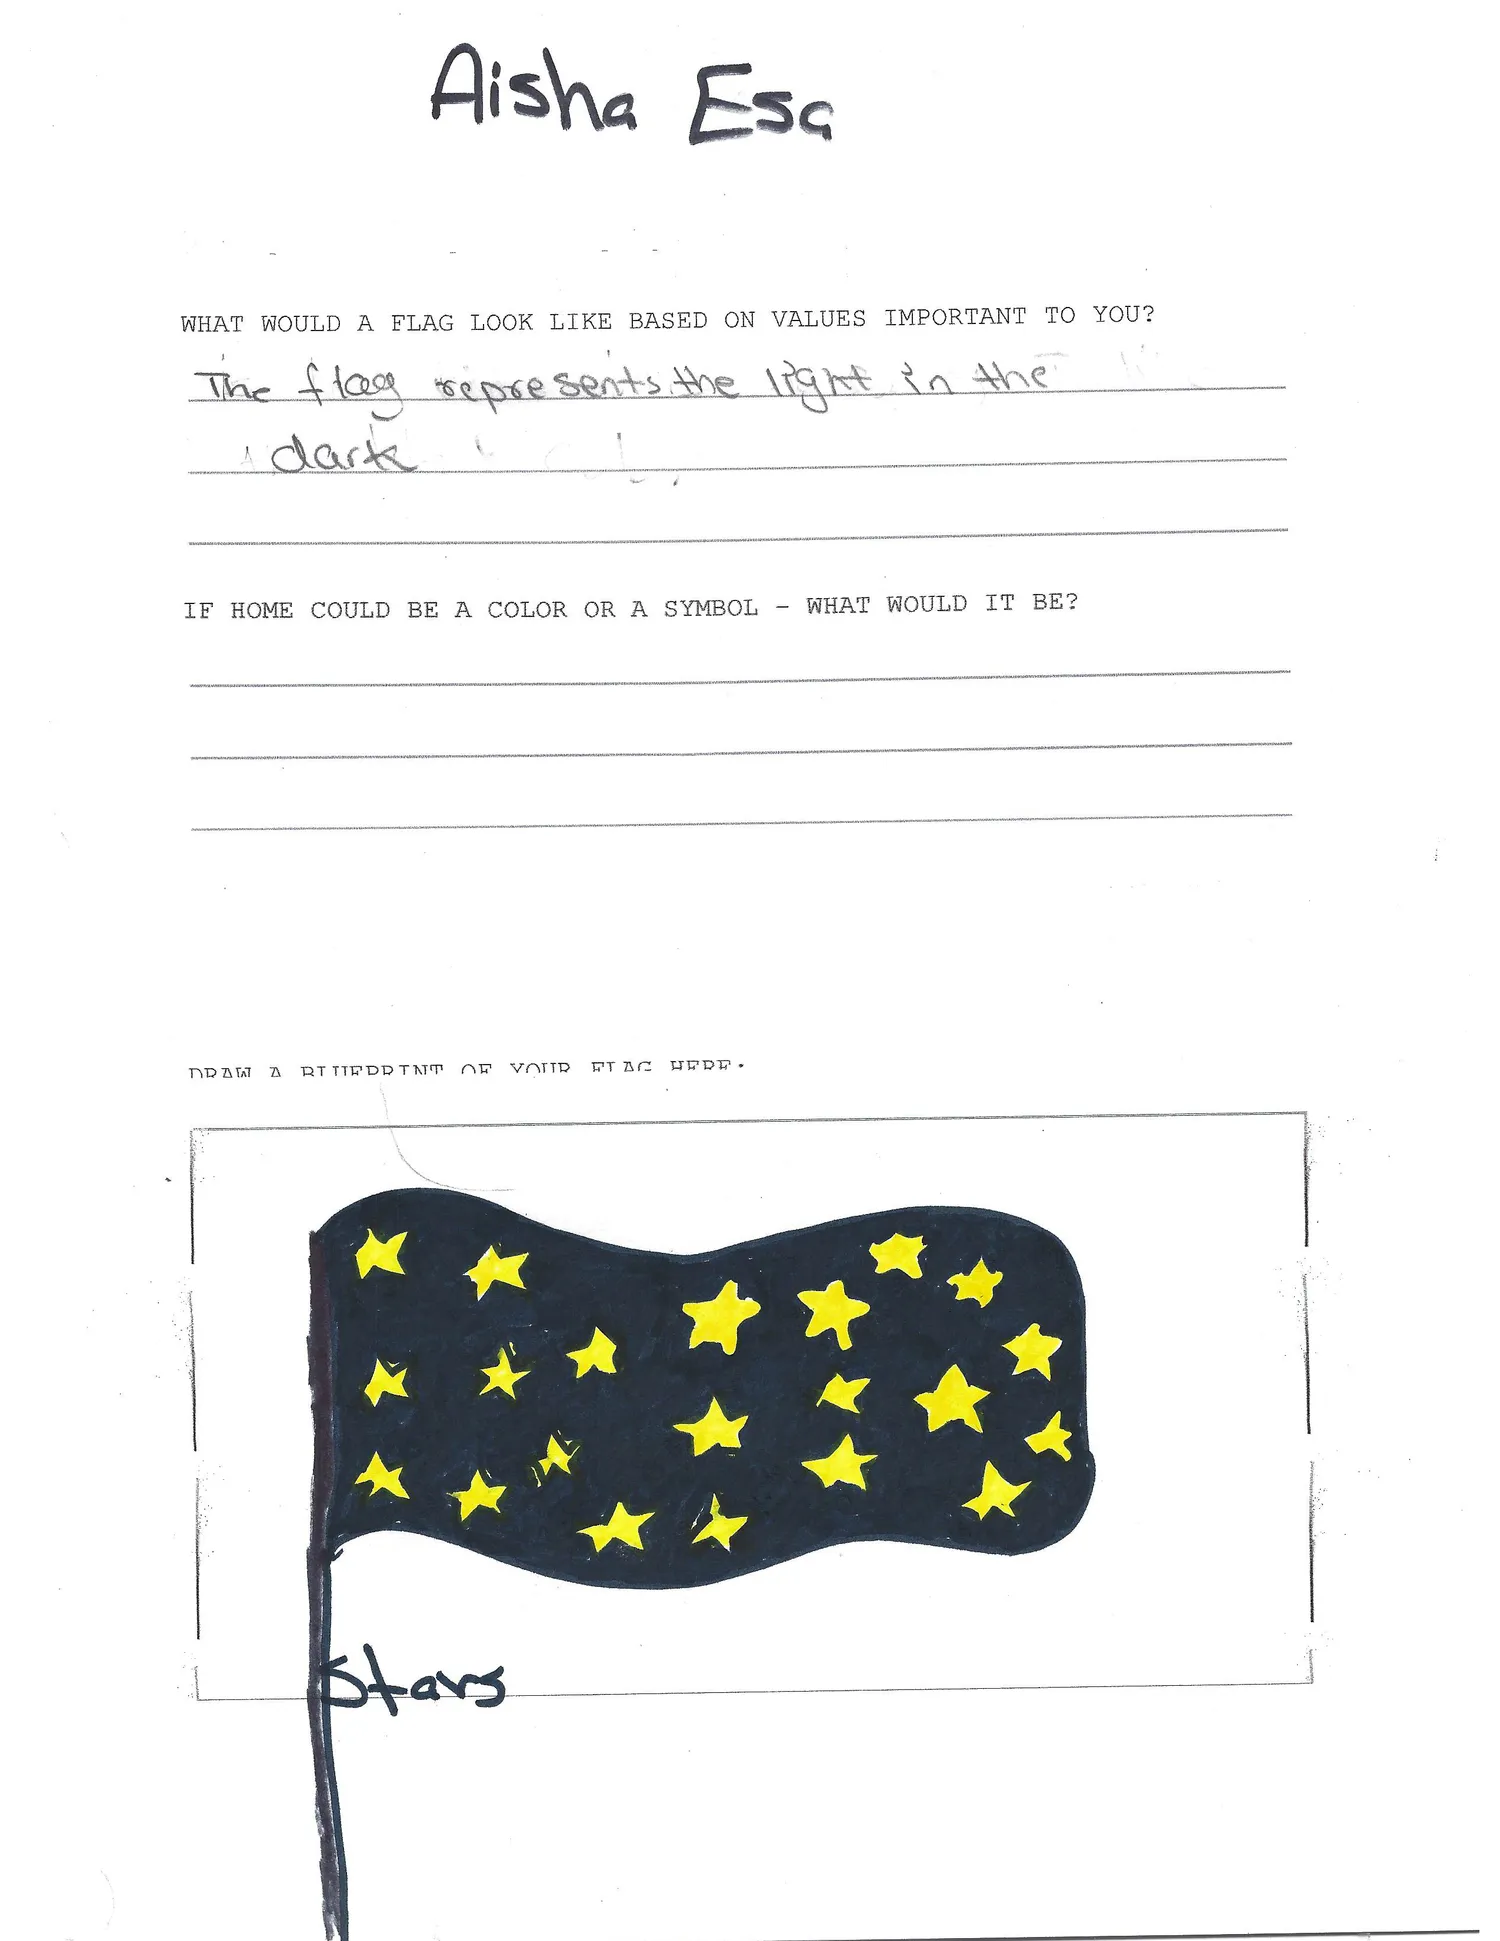 Aisha Esa
WHAT WOULD A FLAG LOOK LIKE BASED ON VALUES IMPORTANT TO YOU?
The flag represents the light in the
dark
IF HOME COULD BE A COLOR OR A SYMBOL – WHAT WOULD IT BE?
DRAW A BLUEPRINT OF YOUR FLAG HERE.
Stars